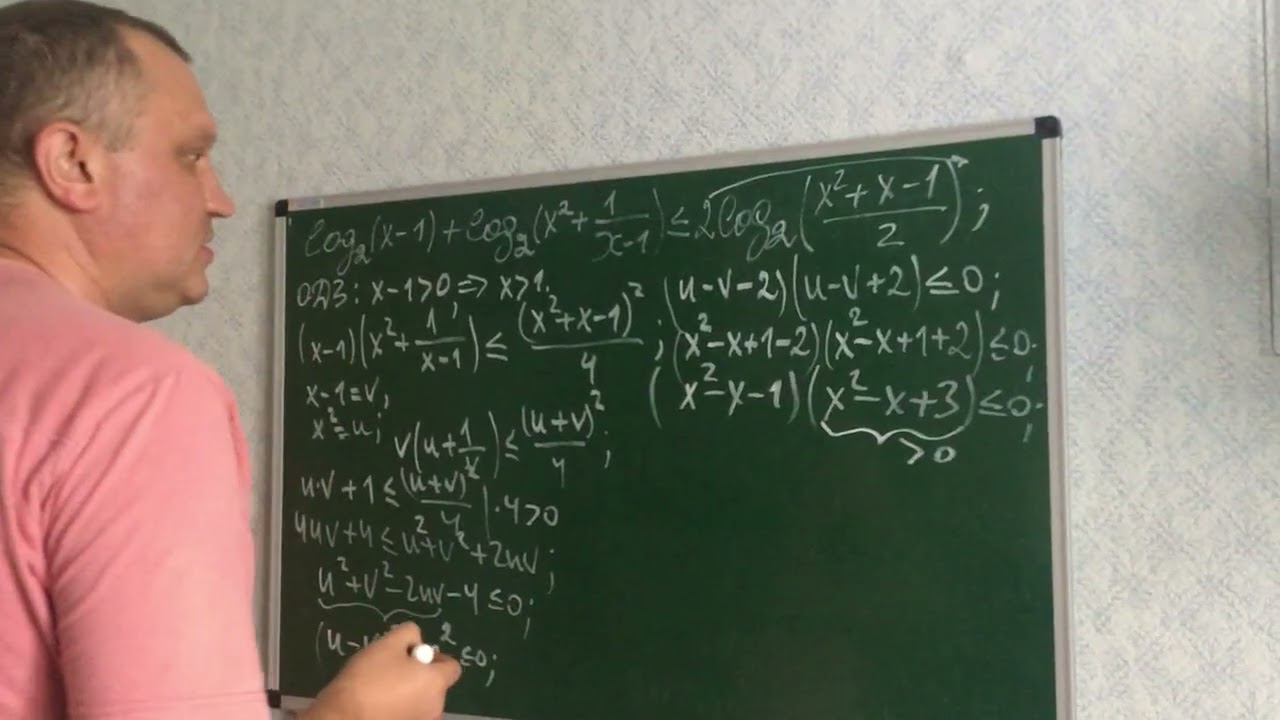 log₂(x-1)+log₂(x²+1/(x-1))≤2log₂((x²+x-1)/2);
ОДЗ: x-1>0, ⇒ x>1.
(x-1)(x²+1/(x-1))≤(x²+x-1)²/4;
x-1=v,
x²=u;
v(u+1/v)≤(u+v)²/4;
u·v+1≤(u+v)²/4 |·4>0
4uv+4≤u²+v²+2uv;
u²+v²-2uv-4≤0;
(u-v)²-2²≤0;
(u-v-2)(u-v+2)≤0;
(x²-x+1-2)(x²-x+1+2)≤0;
(x²-x-1)(x²-x+3)≤0;
>0